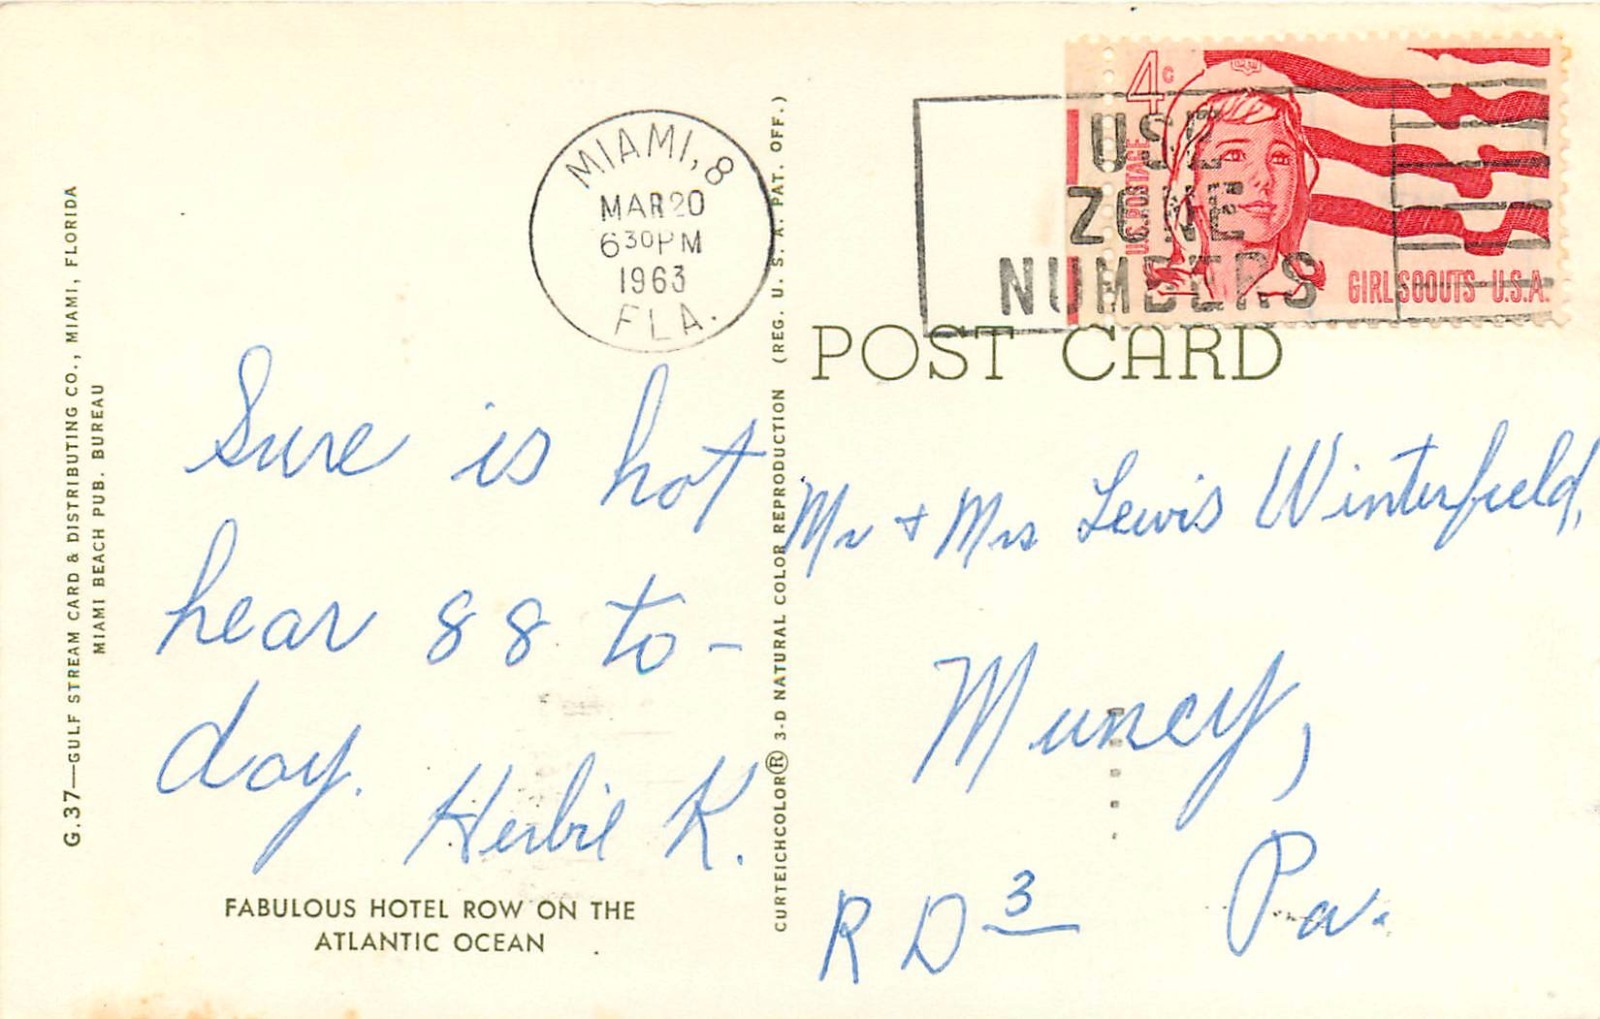 G.37—GULF STREAM CARD & DISTRIBUTING CO., MIAMI, FLORIDA
MIAMI BEACH PUB. BUREAU
MIAMI, 8
MAR 20
6 30 PM
1963
FLA.
4c
U.S. POSTAGE
GIRL SCOUTS U.S.A.
USE
ZONE
NUMBERS
POST CARD
Sure is hot
hear 88 to-
day.
Herbie K.
FABULOUS HOTEL ROW ON THE
ATLANTIC OCEAN
CURTEICHCOLOR® 3-D NATURAL COLOR REPRODUCTION (REG. U. S. A. PAT. OFF.)
Mr + Mrs Lewis Winterfield,
Muncy,
R D 3 Pa.